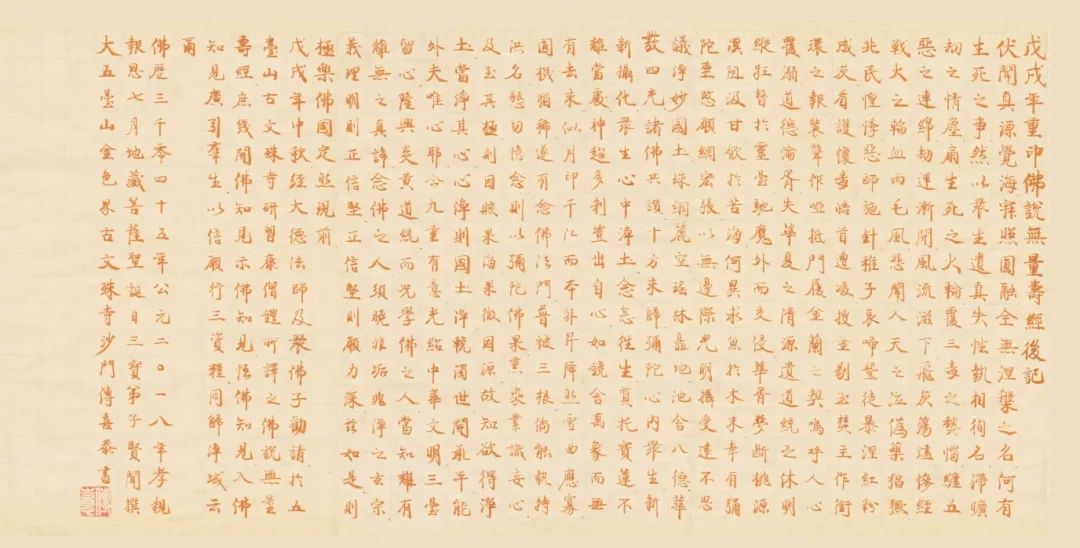 戊戌年重印佛說無量壽經後記
伏聞真源覺海寂照圓融全無涅槃之名何有
生死之事然以眾生遺真失性執相徇名滯曠
劫之情塵扇生死之火輪覆三毒之熱惱纏五
惡之連綿劫運漸開風流滋下飛灰蕩燼慘經
戰火之輪血雨毛風悲聞人天之泣偽樂猖獗
兆民惶悸惡師施針稚子哀啼塾徒暴涅紅粉
成灰看護懷毒首遭凌搜查剔玉主作銜
環之報裝聾作啞抵門廢金蘭之契嗚呼人心
覆溺道德淪胥失華夏之清源遺道統之休明
縱狂瞽於靈臺馳魔外而交侵華胥夢斷桃源
溪阻汲甘飲於苦海何異求魚於木末幸有彌
陀垂愍願網宏張以無邊際光明攝受逮不思
議淨妙國土珠網麗空瑤林矗地池含八德華
發四光諸佛共讚十方來歸彌陀心內眾生新
新攝化眾生心中淨土念念往生質托寶蓮不
離當處神超多剎豈出自心如鏡含萬象而無
有去來似月印千江而本非昇降然雪曲應寡
圓機猶稀遂有念佛法門普被三根倘能執持
洪名懇切憶念則以彌陀佛果熏染業識妄心
及至其極則因賅果海果徹因源故知欲得淨
土當淨其心心淨則國土淨輓濁世開承平能
外夫唯心耶今九重有意光紹中華文明三臺
留心隆興炎黃道統而況學佛之人當知離有
離無之真諦念佛之人須曉非垢非淨之玄宗
義理明則正信堅正信堅則願力深茲如是則
極樂佛國定然現前
戊戌年中秋經大德法師及眾佛子勸請於五
臺山古文殊寺研習康僧鎧所譯之佛說無量
壽經庶幾開佛知見示佛知見悟佛知見入佛
知見廣引羣生以信願行三資糧同歸淨域云
爾
佛歷三千零四十五年公元二〇一八年孝親
報恩七月地藏菩薩聖誕日三寶弟子賢聞撰
大五臺山金色界古文殊寺沙門傳喜恭書